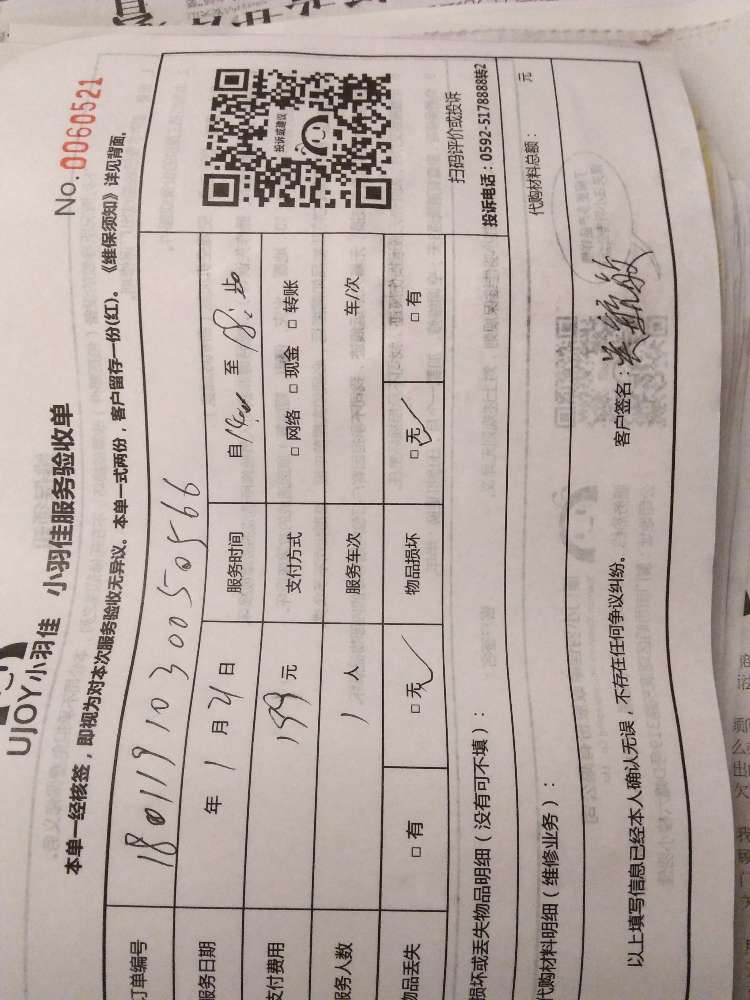 No.0060521
UJOY小羽佳 小羽佳服务验收单
本单一经核签，即视为对本次服务验收无异议。本单一式两份，客户留存一份(红)。《维保须知》详见背面。
订单编号 180119103005050566
服务日期 年 1 月 21 日 服务时间 自 14 至 18:
支付费用 199 元 支付方式 □ 网络 □ 现金 □ 转账
服务人数 1 人 服务车次 车/次
物品丢失 □ 有 □ 无 ✓ 物品损坏 □ 无 ✓ □ 有
投诉或建议
扫码评价或投诉
投诉电话：0592-5178888转2
损坏或丢失物品明细（没有可不填）：
代购材料明细（维修业务）： 代购材料总额： 元
以上填写信息已经本人确认无误，不存在任何争议纠纷。 客户签名：